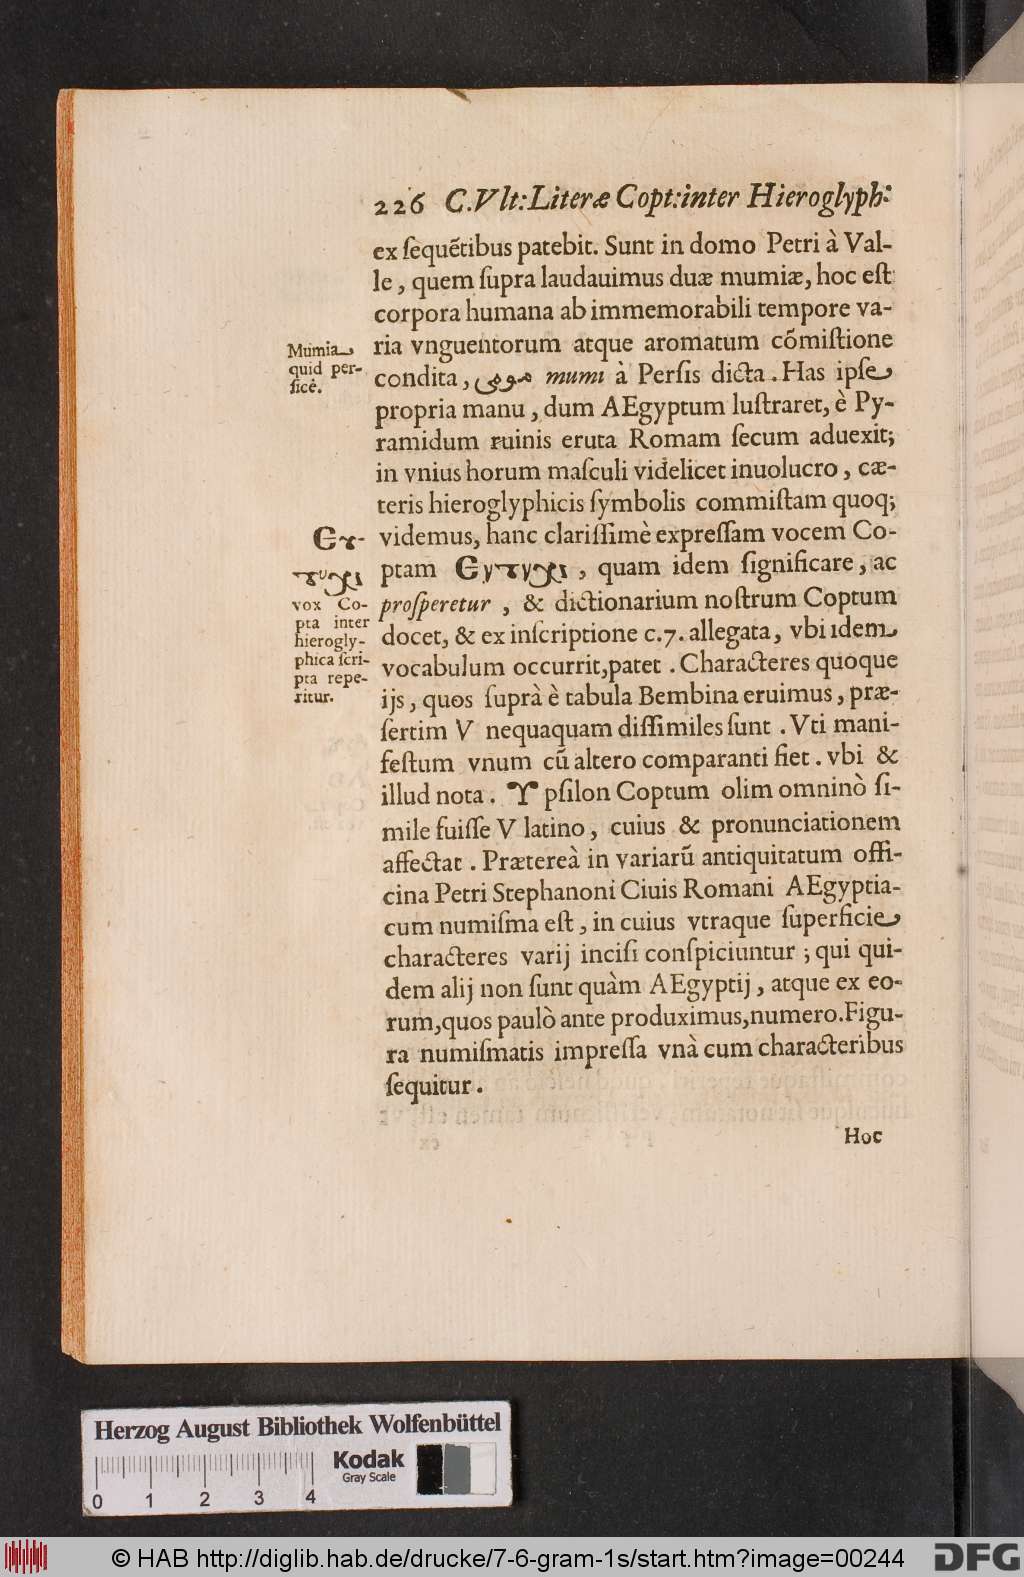 226 C.Vlt:Literæ Copt:inter Hieroglyph:
ex ſequẽtibus patebit. Sunt in domo Petri à Val-
le, quem ſupra laudauimus duæ mumiæ, hoc eſt
corpora humana ab immemorabili tempore va-
ria vnguentorum atque aromatum cõmiſtione
condita, مومى mumi à Perſis dicta. Has ipſe
propria manu, dum AEgyptum luſtraret, è Py-
ramidum ruinis eruta Romam ſecum aduexit;
in vnius horum maſculi videlicet inuolucro, cæ-
teris hieroglyphicis ſymbolis commiſtam quoq;
videmus, hanc clariſſimè expreſſam vocem Co-
ptam Ⲉⲩⲧⲩⲭⲓ, quam idem ſignificare, ac
proſperetur, & dictionarium noſtrum Coptum
docet, & ex inſcriptione c.7. allegata, vbi idem
vocabulum occurrit, patet. Characteres quoque
ijs, quos ſuprà è tabula Bembina eruimus, præ-
ſertim V nequaquam diſſimiles ſunt. Vti mani-
feſtum vnum cũ altero comparanti fiet. vbi &
illud nota. ϒ pſilon Coptum olim omninò ſi-
mile fuiſſe V latino, cuius & pronunciationem
affectat. Prætereà in variarũ antiquitatum offi-
cina Petri Stephanoni Ciuis Romani AEgyptia-
cum numiſma eſt, in cuius vtraque ſuperficie
characteres varij inciſi conſpiciuntur; qui qui-
dem alij non ſunt quàm AEgyptij, atque ex eo-
rum, quos paulò ante produximus, numero. Figu-
ra numiſmatis impreſſa vnà cum characteribus
ſequitur.
Hoc
Mumia
quid per-
ſicè.
Ⲉⲩ-
ⲧⲩⲭⲓ
vox Co-
pta inter
hierogly-
phica ſcri-
pta repe-
ritur.
Herzog August Bibliothek Wolfenbüttel
Kodak
Gray Scale
0 1 2 3 4
© HAB http://diglib.hab.de/drucke/7-6-gram-1s/start.htm?image=00244
DFG